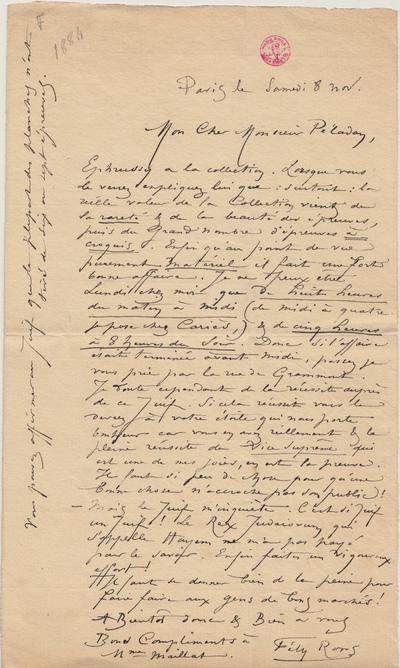 1884
Paris le Samedi 8 nov.
Mon Cher Monsieur Péladan,
Ephrussy a la collection. Lorsque vous
le verrez expliquez lui que : surtout : la
réelle valeur de la Collection vient de
sa rareté & de la beauté des épreuves,
puis du Grand nombre d'épreuves à
croquis. Enfin qu'au point de vue
purement matériel il fait une forte
bonne affaire. Je ne peux être
Lundi chez moi que de huit heures
du matin à midi (de midi à quatre
je pose chez Cariès,) & de cinq heures
à 8 heures du soir. Donc si l'affaire
était terminée avant midi, passez je
vous prie par la rue de Grammont.
Je doute cependant de la réussite auprès
de ce Juif. Si cela réussit vous le
devrez à votre étoile qui nous porte
bonheur car vous en avez réellement & la
pleine réussite du Vice Suprême qui
est une de mes joies, en est la preuve.
Il faut si peu de chose pour qu'une
bonne chose n'accroche pas son public!
– Mais le Juif m'inquiète. C'est si Juif
un Juif! Le Rex Judaiorum, qui
s'appelle Hayem ne m'a pas payé
pour le savoir. Enfin faites un vigoureux
effort!
Il faut se donner bien de la peine pour
faire faire aux gens de bons marchés!
A Bientôt donc & Bien à vous
Bons Compliments à
Mme Maillat.
Fély Rops
Vous pouvez affirmer au Juif que la plupart des planches n'ont
tirés de six ou sept épreuves.